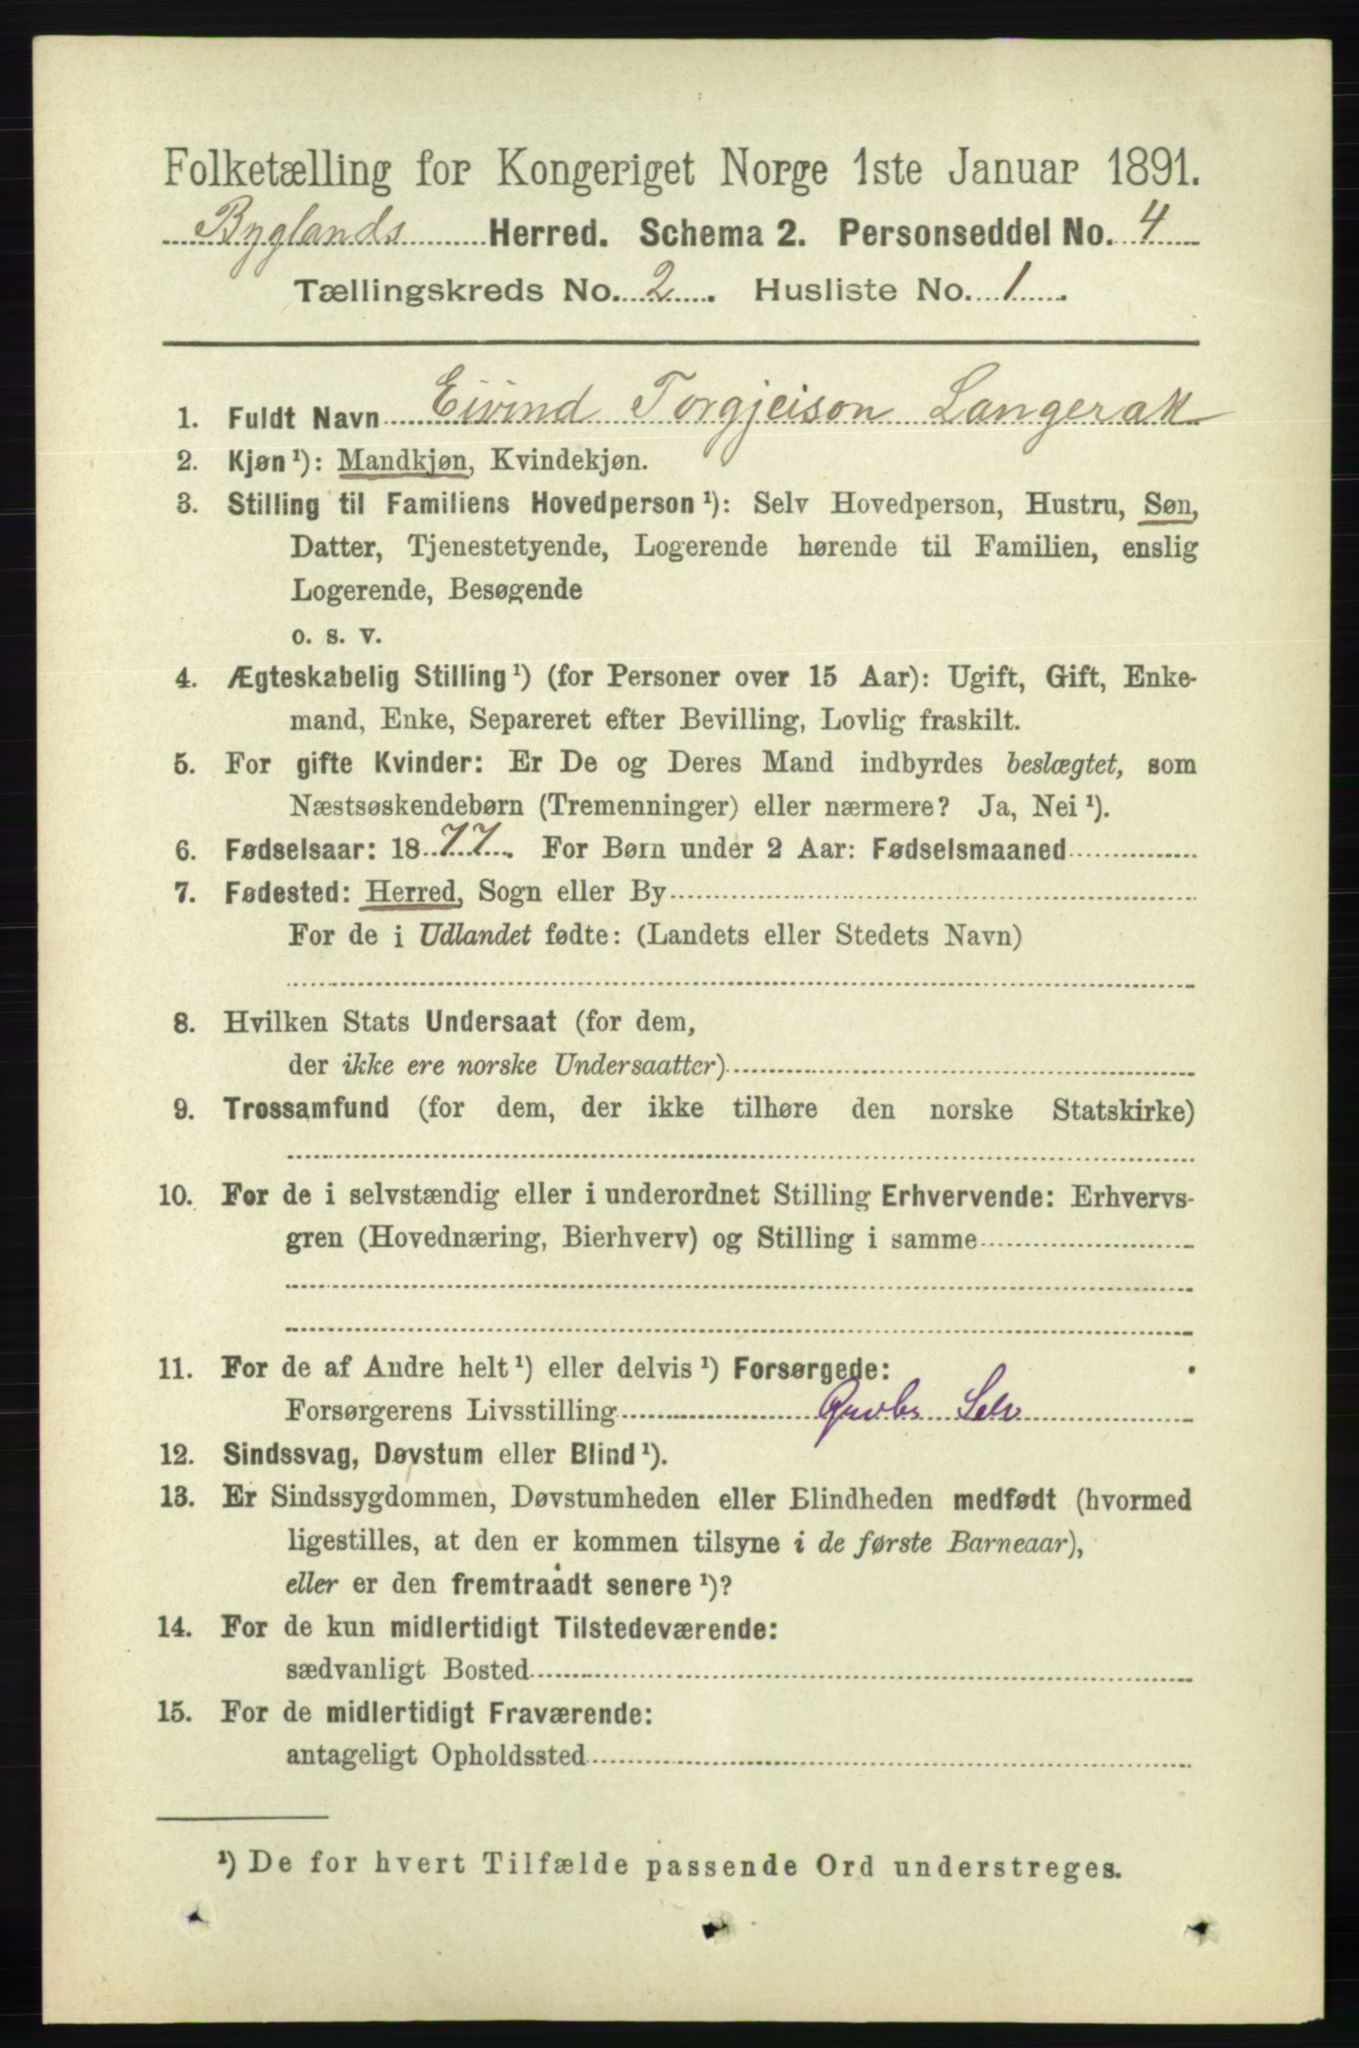 Folketælling for Kongeriget Norge 1ste Januar 1891.
Byglands Herred. Schema 2. Personseddel No. 4
Tællingskreds No. 2. Husliste No. 1.
1. Fuldt Navn Eivind Torgjeison Langerak
2. Kjøn¹): Mandkjøn, Kvindekjøn.
3. Stilling til Familiens Hovedperson¹): Selv Hovedperson, Hustru, Søn,
Datter, Tjenestetyende, Logerende hørende til Familien, enslig
Logerende, Besøgende
o. s. v.
4. Ægteskabelig Stilling¹) (for Personer over 15 Aar): Ugift, Gift, Enke-
mand, Enke, Separeret efter Bevilling, Lovlig fraskilt.
5. For gifte Kvinder: Er De og Deres Mand indbyrdes beslægtet, som
Næstsøskendebørn (Tremenninger) eller nærmere? Ja, Nei¹).
6. Fødselsaar: 1877. For Børn under 2 Aar: Fødselsmaaned
7. Fødested: Herred, Sogn eller By
For de i Udlandet fødte: (Landets eller Stedets Navn)
8. Hvilken Stats Undersaat (for dem,
der ikke ere norske Undersaatter)
9. Trossamfund (for dem, der ikke tilhøre den norske Statskirke)
10. For de i selvstændig eller i underordnet Stilling Erhvervende: Erhvervs-
gren (Hovednæring, Bierhverv) og Stilling i samme
11. For de af Andre helt¹) eller delvis¹) Forsørgede:
Forsørgerens Livsstilling Gaardbr Selv
12. Sindssvag, Døvstum eller Blind¹).
13. Er Sindssygdommen, Døvstumheden eller Blindheden medfødt (hvormed
ligestilles, at den er kommen tilsyne i de første Barneaar),
eller er den fremtraadt senere¹)?
14. For de kun midlertidigt Tilstedeværende:
sædvanligt Bosted
15. For de midlertidigt Fraværende:
antageligt Opholdssted
¹) De for hvert Tilfælde passende Ord understreges.